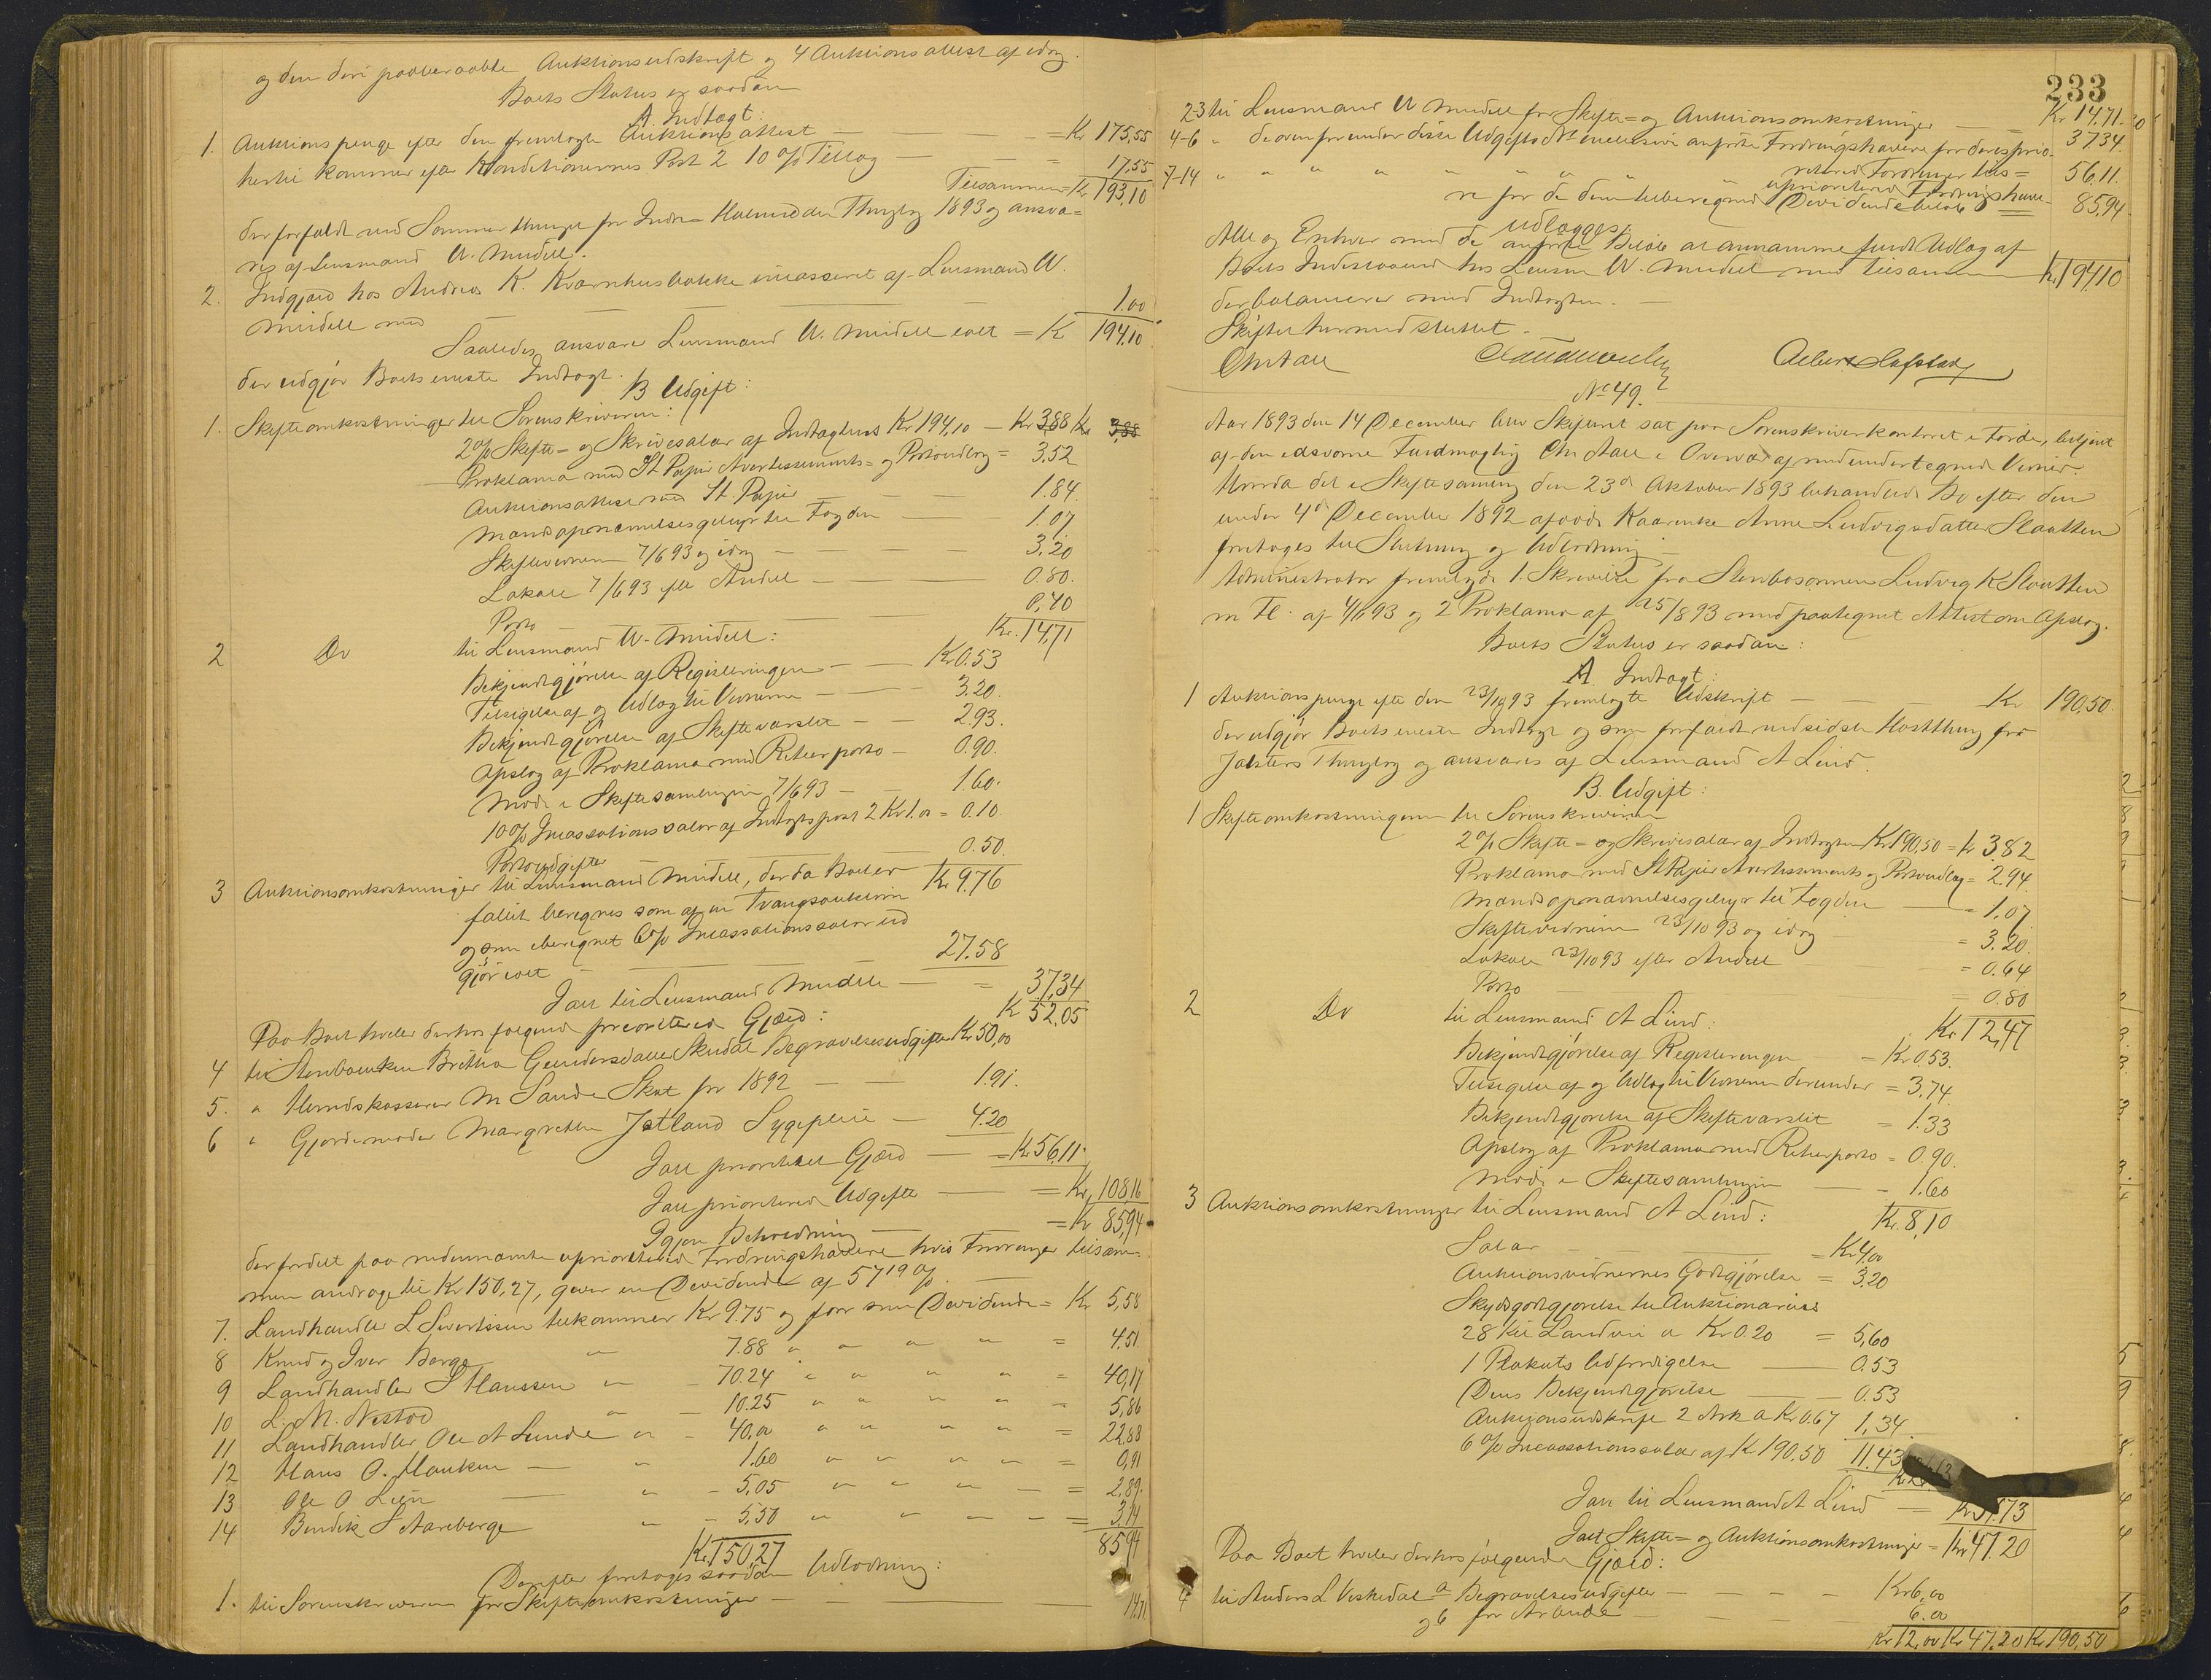 og den deri paaberaabte Auktionsudskrift og 4 Auktionsattest af idag.
Boets Status er saadan
A. Indtægt:
1. Auktionspenge efter den fremlagte Auktionsattest — = Kr 175,55
hertil kommer efter Konditionernes Post 2 10 % Tillæg — = 17.55
Tilsammen = Kr 193,10
der forfaldt ved Sommerthinget for Indre Holmedalen Thinglag 1893 og ansva=
res af Lensmand W. Midell.
2. Indgjæld hos Andreas K. Kvarnhusbakke incasseret af Lensmand W.
Midell med — 1.00
Saaledes ansvarer Lensmand W. Midell ialt = K 194,10
der udgjør Boets eneste Indtægt.
B Udgift:
1. Skifteomkostninger til Sorenskriveren:
2 % Skifte- og Skriversalær af Indtægtens Kr 194,10 — Kr 3.88 Kr 3,88
Proklama med St. Papir Avertissements- og Portoudlæg = 3.52
Auktionsattest med St. Papir — 1.84.
Mandsopnævnelsesgebyr til Fogden — 1.07
Skiftevidnerne 7/6 93 og idag — 3,20
Lokale 7/6 93 efter Andel — 0.80.
Porto — 0,40
Kr. 14,71
2 Do til Lensmand W. Midell:
Bekjendtgjørelse af Registreringen — Kr 0.53
Tilsigelse af og Udlæg til Vidnerne — 3.20.
Bekjendtgjørelse af Skiftevarslet — 2.93.
Opslag af Proklama med Returporto — 0.90.
Møde i Skiftesamlingen 7/6 93 — 1.60.
10 % Incassationssalær af Indtægtspost 2 Kr 1.00 = 0.10.
Portoudgifter — 0.50.
Kr 9,76
3 Auktionsomkostninger til Lensmand Midell, der da Boet er
fallit beregnes som af en Tvangsauktion
og som iberegnet 6 % Incassationssalær ud
gjør ialt — 27.58
Jalt til Lensmand Midell — = 37,34
K 52,05
Paa Boet hviler derhos følgende prioriteret Gjæld:
4 til Stenboenken Britha Gundersdatter Skudal Begravelsesudgifter Kr 50,00
5. " Herredskasserer M Sande Skat for 1892 — 1.91.
6 " Gjordemoder Margrethe Jetland Sygepleie — 4.20
Jalt prioriteret Gjæld — = Kr 56,11.
Jalt prioriterede Udgifter — = Kr 108,16
Igjen Beholdning — = Kr 85,94
der fordelt paa nedennævnte uprioriterede Fordringshavere hvis Fordringer tilsam-
men andrage til Kr 150,27, giver en Devidende af 57 19 %.
7. Landhandler L Sivertssen tilkommer Kr 9.75 og faar som Devidende = Kr 5,58
8 Knud og Iver Berge " 7.88 " " " = 4.51
9 Landhandler S Hanssen " - 70.24 " " " " = 40,17
10 L. M. Nestod " — 10.25 " " " " = 5,86
11 Landhandler Ole A Lunde " - 40,00 " " " " = 22,88
12 Hans O. Hauken — " 1.60 " " " " = 0,91
13 Ole O Lien — " - 5,05 " " " — = 2,89.
14 Bendik S Aareberge " - 5,50 " " " — = 3,14
Kr 150,27 85,94
Derefter foretoges saadan Udlodning:
1. til Sorenskriveren for Skifteomkostninger — 14,71
233
2-3 til Lensmand W Midell for Skifte- og Auktionsomkostninger — Kr 14,71
4-6 " de ovenfor under disse Udgifts No inclusive anførte Fordringshavere for deres prio- 37.34
riterede Fordringer tils = 56.11.
7-14 " " " " " " " uprioriterede Fordringshave-
re for de dem tilberegnede Devidendebeløb = 85,94
Alle og Enhver med de anførte Beløb udlægges at annamme fuldt Udlæg af
Boets Indestaaende hos Lensm W. Midell med tilsammen — Kr 194,10
der balancerer med Indtægten. —
Skiftet hermed sluttet.
Chr Aall Albert Hafstad
No 49.
Aar 1893 den 14 December blev Skifteret sat paa Sorenskriverkontoret i Førde, betjent
af den edsvorne Fuldmægtig Chr Aall i Overvær af medundertegnede Vidner.
Hvorda det i Skiftesamling den 23de Oktober 1893 behandlede Bo efter den
under 4de December 1892 afdøde Kaarinke Anne Ludvigsdatter Slaatten
foretages til Slutning og Udlodning.—
Administrator fremlagde 1. Skrivelse fra Stenbosønnen Ludvig K Slaatten
m fl. af 4/6 93 og 2 Proklama af 25/8 93 med paategnet Attest om Opslag.
Boets Status er saadan:
A. Indtægt:
1 Auktionspenge efter den 23/10 93 fremlagte Udskrift — Kr 190,50.
der udgjør Boets eneste Indtægt og som forfaldt ved sidste Høstthing for
Jølsters Thinglag og ansvares af Lensmand A Lind.
B. Udgift:
1 Skifteomkostningerne til Sorenskriveren
2 % Skifte- og Skriversalær af Indtægten Kr 190,50 = Kr 3.82
Proklama med St Papir Avertissements og Portoudlæg = 2.94.
Mandsopnævnelsesgebyr til Fogden — = 1.07
Skiftevidnerne 23/10 93 og idag — = 3.20.
Lokale 23/10 93 efter Andel — = 0.64
Porto — = 0.80
Kr 12,47
2 Do til Lensmand A Lind:
Bekjendtgjørelse af Registreringen — = Kr 0.53.
Tilsigelse af og Udlæg til Vidnerne derunder = 3,74.
Bekjendtgjørelse af Skiftevarslet = 1.33
Opslag af Proklama med Returporto = 0.90.
Møde i Skiftesamlingen — - 1.60
Kr. 8,10
3 Auktionsomkostninger til Lensmand A Lind:
Salær — = Kr 4,00
Auktionsvidnernes Godtgjørelse = 3,20
Skydsgodtgjørelse til Auktionarius
28 Kil Landvei a Kr 0.20 = 5,60
1 Plakats Udfærdigelse — 0.53
Dens Bekjendtgjørelse — 0.53
Auktionsudskrift 2 Ark a Kr 0.67 1,34.
6 % Incassationssalær af K 190,50 11.43
Jalt til Lensmand A Lind —
Jalt Skifte- og Auktionsomkostninger = Kr 47.20
Paa Boet hviler derhos følgende Gjæld:
4 til Anders L Veshedal a Begravelsesudgifter — Kr 6,00
og b for Arbeide — 6.00
Kr 12,00 Kr 47.20 Kr 190,50